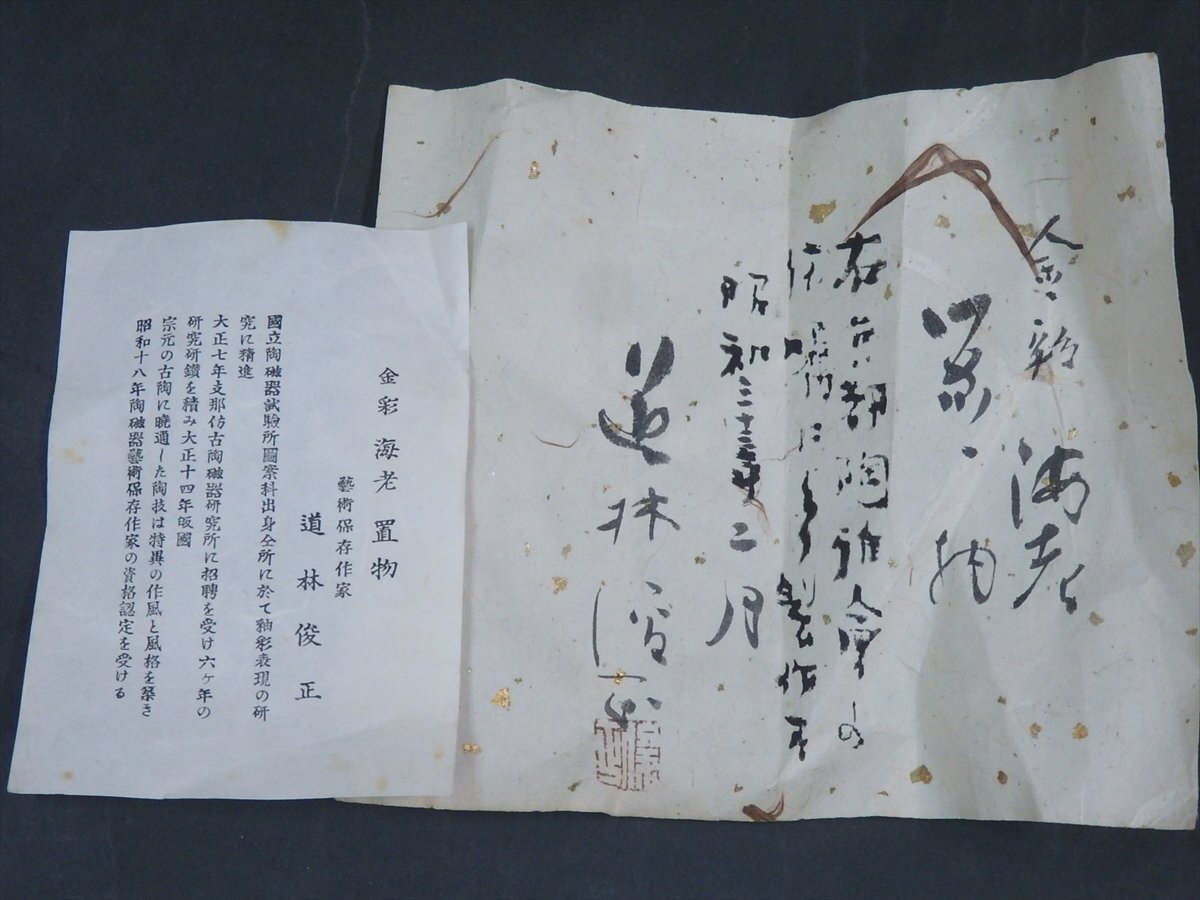 金彩 海老
置物
右京都陶雅会の
依嘱により製作す
昭和三十三年二月
道林俊正
金彩 海老 置物
藝術保存作家
道林俊正
國立陶磁器試驗所圖案科出身仝所に於て釉彩表現の研
究に精進
大正七年支那仿古陶磁器研究所に招聘を受け六ヶ年の
研究研鑽を積み大正十四年皈國
宗元の古陶に暁通した陶技は特異の作風と風格を築き
昭和十八年陶磁器藝術保存作家の資格認定を受ける